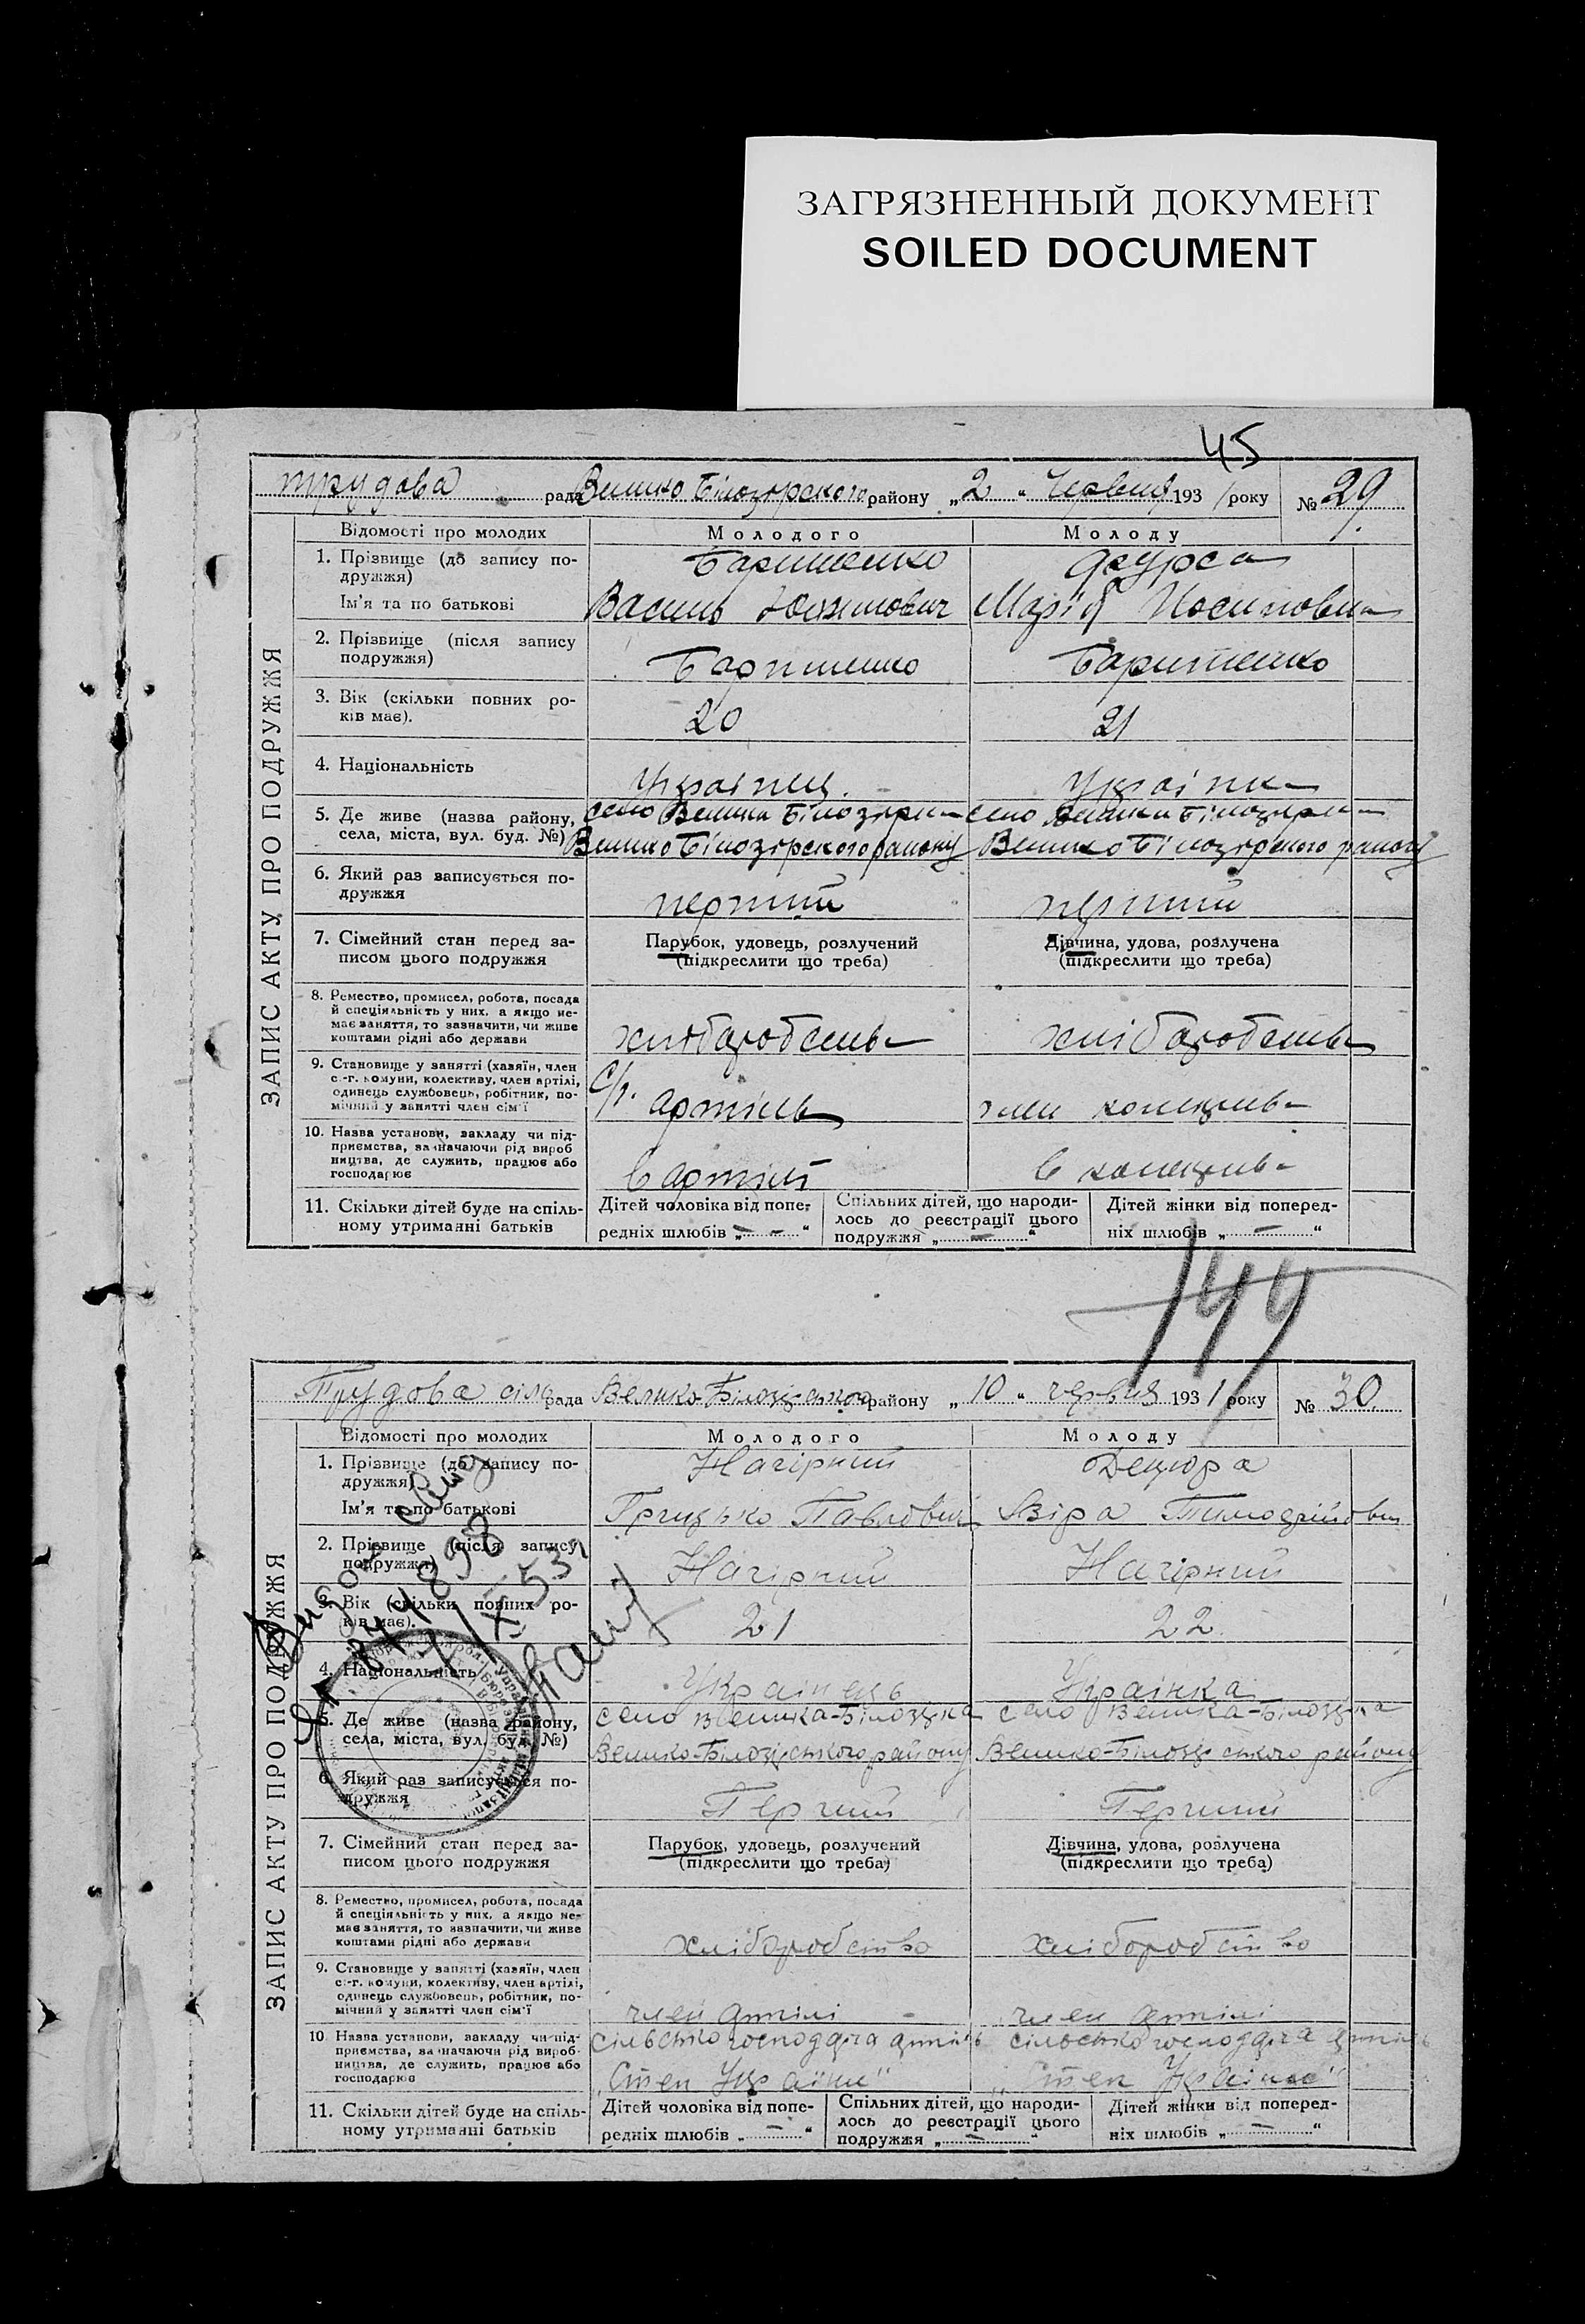 ЗАГРЯЗНЕННЫЙ ДОКУМЕНТ
SOILED DOCUMENT
45
трудова рада Велико Білозорского району „2" Червня 1931 року № 29
ЗАПИС АКТУ ПРО ПОДРУЖЖЯ
Відомості про молодих Молодого Молоду
1. Прізвище (до запису по-
дружжя)
Ім'я та по батькові
Василь Марія
2. Прізвище (після запису
подружжя)
3. Вік (скільки повних ро-
ків має).
20 21
4. Національність
Українец. Українка
5. Де живе (назва району,
села, міста, вул. буд. №)
село Велика Білозірка село Велика Білозірка
Велико Білозорского району Велико Білозорского району
6. Який раз записується по-
дружжя
перший перший
7. Сімейний стан перед за-
писом цього подружжя
Парубок, удовець, розлучений
(підкреслити що треба)
Дівчина, удова, розлучена
(підкреслити що треба)
8. Ремество, промисел, робота, посада
й спеціяльність у них, а якщо не-
має заняття, то зазначити, чи живе
коштами рідні або держави
9. Становище у занятті (хазяїн, член
с.-г. комуни, колективу, член артілі,
одинець службовець, робітник, по-
мічний у занятті член сім'ї
С/г. артіль член
10. Назва установи, закладу чи під-
приємства, зазначаючи рід вироб
ництва, де служить, працює або
господарює
в артілі в
11. Скільки дітей буде на спіль-
ному утриманні батьків
Дітей чоловіка від попе-
редніх шлюбів „ — "
Спільних дітей, що народи-
лось до реєстрації цього
подружжя „ — "
Дітей жінки від поперед-
ніх шлюбів „ — "
144
Трудова сіль рада Велико-Білозірського району „10" червня 1931 року № 30
ЗАПИС АКТУ ПРО ПОДРУЖЖЯ
Відомості про молодих Молодого Молоду
1. Прізвище (до запису по-
дружжя)
Нагірний Децюра
Ім'я та по батькові
Грицько Павлович Віра
2. Прізвище (після запису
подружжя)
Нагірний Нагірний
3. Вік (скільки повних ро-
ків має).
21 22
4. Національність
Українець Українка
5. Де живе (назва району,
села, міста, вул. буд. №)
село Велика-Білозірка село Велика-Білозірка
Велико-Білозірського району Велико-Білозірського району
6. Який раз записується по-
дружжя
Перший Перший
7. Сімейний стан перед за-
писом цього подружжя
Парубок, удовець, розлучений
(підкреслити що треба)
Дівчина, удова, розлучена
(підкреслити що треба)
8. Ремество, промисел, робота, посада
й спеціяльність у них, а якщо не-
має заняття, то зазначити, чи живе
коштами рідні або держави
хліборобство хліборобство
9. Становище у занятті (хазяїн, член
с.-г. комуни, колективу, член артілі,
одинець службовець, робітник, по-
мічний у занятті член сім'ї
член артілі член артілі
10 Назва установи, закладу чи під-
приємства, зазначаючи рід вироб-
ництва, де служить, працює або
господарює
сільсько господарча артіль сільсько господарча артіль
„Степ України" „Степ України"
11. Скільки дітей буде на спіль-
ному утриманні батьків
Дітей чоловіка від попе-
редніх шлюбів „ — "
Спільних дітей, що народи-
лось до реєстрації цього
подружжя „ — "
Дітей жінки від поперед-
ніх шлюбів „ — "